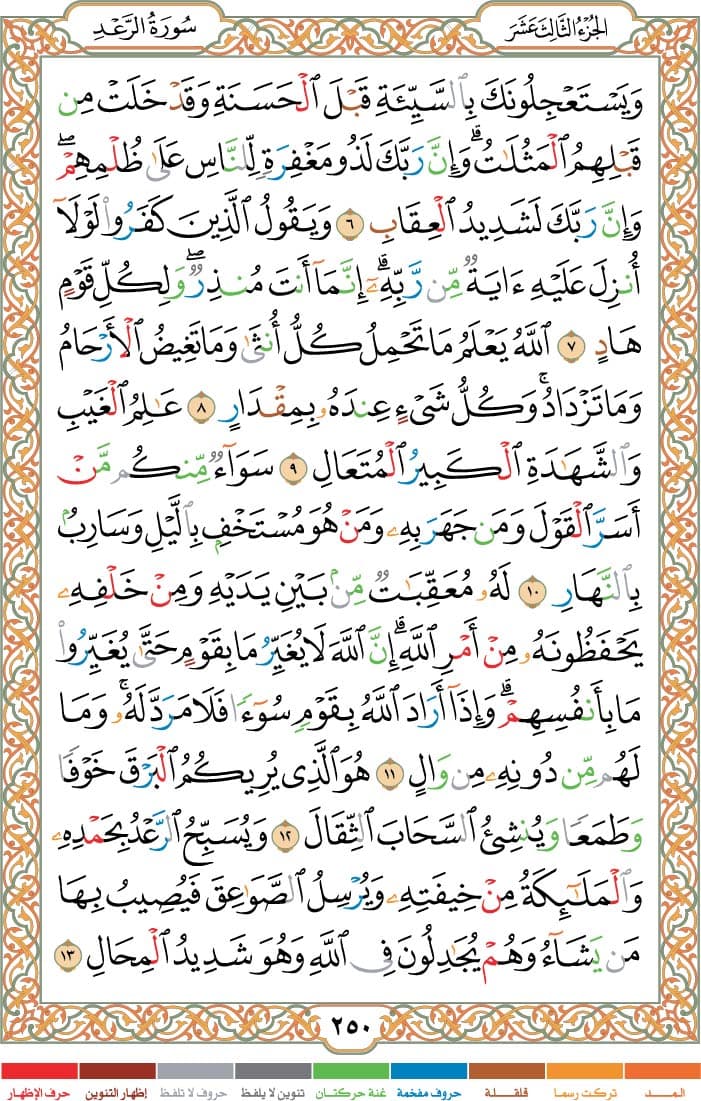 سُورَةُ الرَّعْدِ
الجُزْءُ الثَّالِثَ عَشَرَ
وَيَسْتَعْجِلُونَكَ بِٱلسَّيِّئَةِ قَبْلَ ٱلْحَسَنَةِ وَقَدْ خَلَتْ مِن
قَبْلِهِمُ ٱلْمَثُلَٰتُ ۗ وَإِنَّ رَبَّكَ لَذُو مَغْفِرَةٍ لِّلنَّاسِ عَلَىٰ ظُلْمِهِمْ ۖ
وَإِنَّ رَبَّكَ لَشَدِيدُ ٱلْعِقَابِ ٦ وَيَقُولُ ٱلَّذِينَ كَفَرُوا۟ لَوْلَآ
أُنزِلَ عَلَيْهِ ءَايَةٌ مِّن رَّبِّهِۦٓ ۗ إِنَّمَآ أَنتَ مُنذِرٌ ۖ وَلِكُلِّ قَوْمٍ
هَادٍ ٧ ٱللَّهُ يَعْلَمُ مَا تَحْمِلُ كُلُّ أُنثَىٰ وَمَا تَغِيضُ ٱلْأَرْحَامُ
وَمَا تَزْدَادُ ۖ وَكُلُّ شَىْءٍ عِندَهُۥ بِمِقْدَارٍ ٨ عَٰلِمُ ٱلْغَيْبِ
وَٱلشَّهَٰدَةِ ٱلْكَبِيرُ ٱلْمُتَعَالِ ٩ سَوَآءٌ مِّنكُم مَّنْ
أَسَرَّ ٱلْقَوْلَ وَمَن جَهَرَ بِهِۦ وَمَنْ هُوَ مُسْتَخْفٍۭ بِٱلَّيْلِ وَسَارِبٌۢ
بِٱلنَّهَارِ ١٠ لَهُۥ مُعَقِّبَٰتٌ مِّنۢ بَيْنِ يَدَيْهِ وَمِنْ خَلْفِهِۦ
يَحْفَظُونَهُۥ مِنْ أَمْرِ ٱللَّهِ ۗ إِنَّ ٱللَّهَ لَا يُغَيِّرُ مَا بِقَوْمٍ حَتَّىٰ يُغَيِّرُوا۟
مَا بِأَنفُسِهِمْ ۗ وَإِذَآ أَرَادَ ٱللَّهُ بِقَوْمٍ سُوٓءًا فَلَا مَرَدَّ لَهُۥ ۚ وَمَا
لَهُم مِّن دُونِهِۦ مِن وَالٍ ١١ هُوَ ٱلَّذِى يُرِيكُمُ ٱلْبَرْقَ خَوْفًا
وَطَمَعًا وَيُنشِئُ ٱلسَّحَابَ ٱلثِّقَالَ ١٢ وَيُسَبِّحُ ٱلرَّعْدُ بِحَمْدِهِۦ
وَٱلْمَلَٰٓئِكَةُ مِنْ خِيفَتِهِۦ وَيُرْسِلُ ٱلصَّوَٰعِقَ فَيُصِيبُ بِهَا
مَن يَشَآءُ وَهُمْ يُجَٰدِلُونَ فِى ٱللَّهِ وَهُوَ شَدِيدُ ٱلْمِحَالِ ١٣
٢٥٠
المـــد
تركت رسما
قلقـلـة
حروف مفخمة
غنة حركتان
تنوين لا يلفظ
حروف لا تلفظ
إظهار التنوين
حرف الإظهار